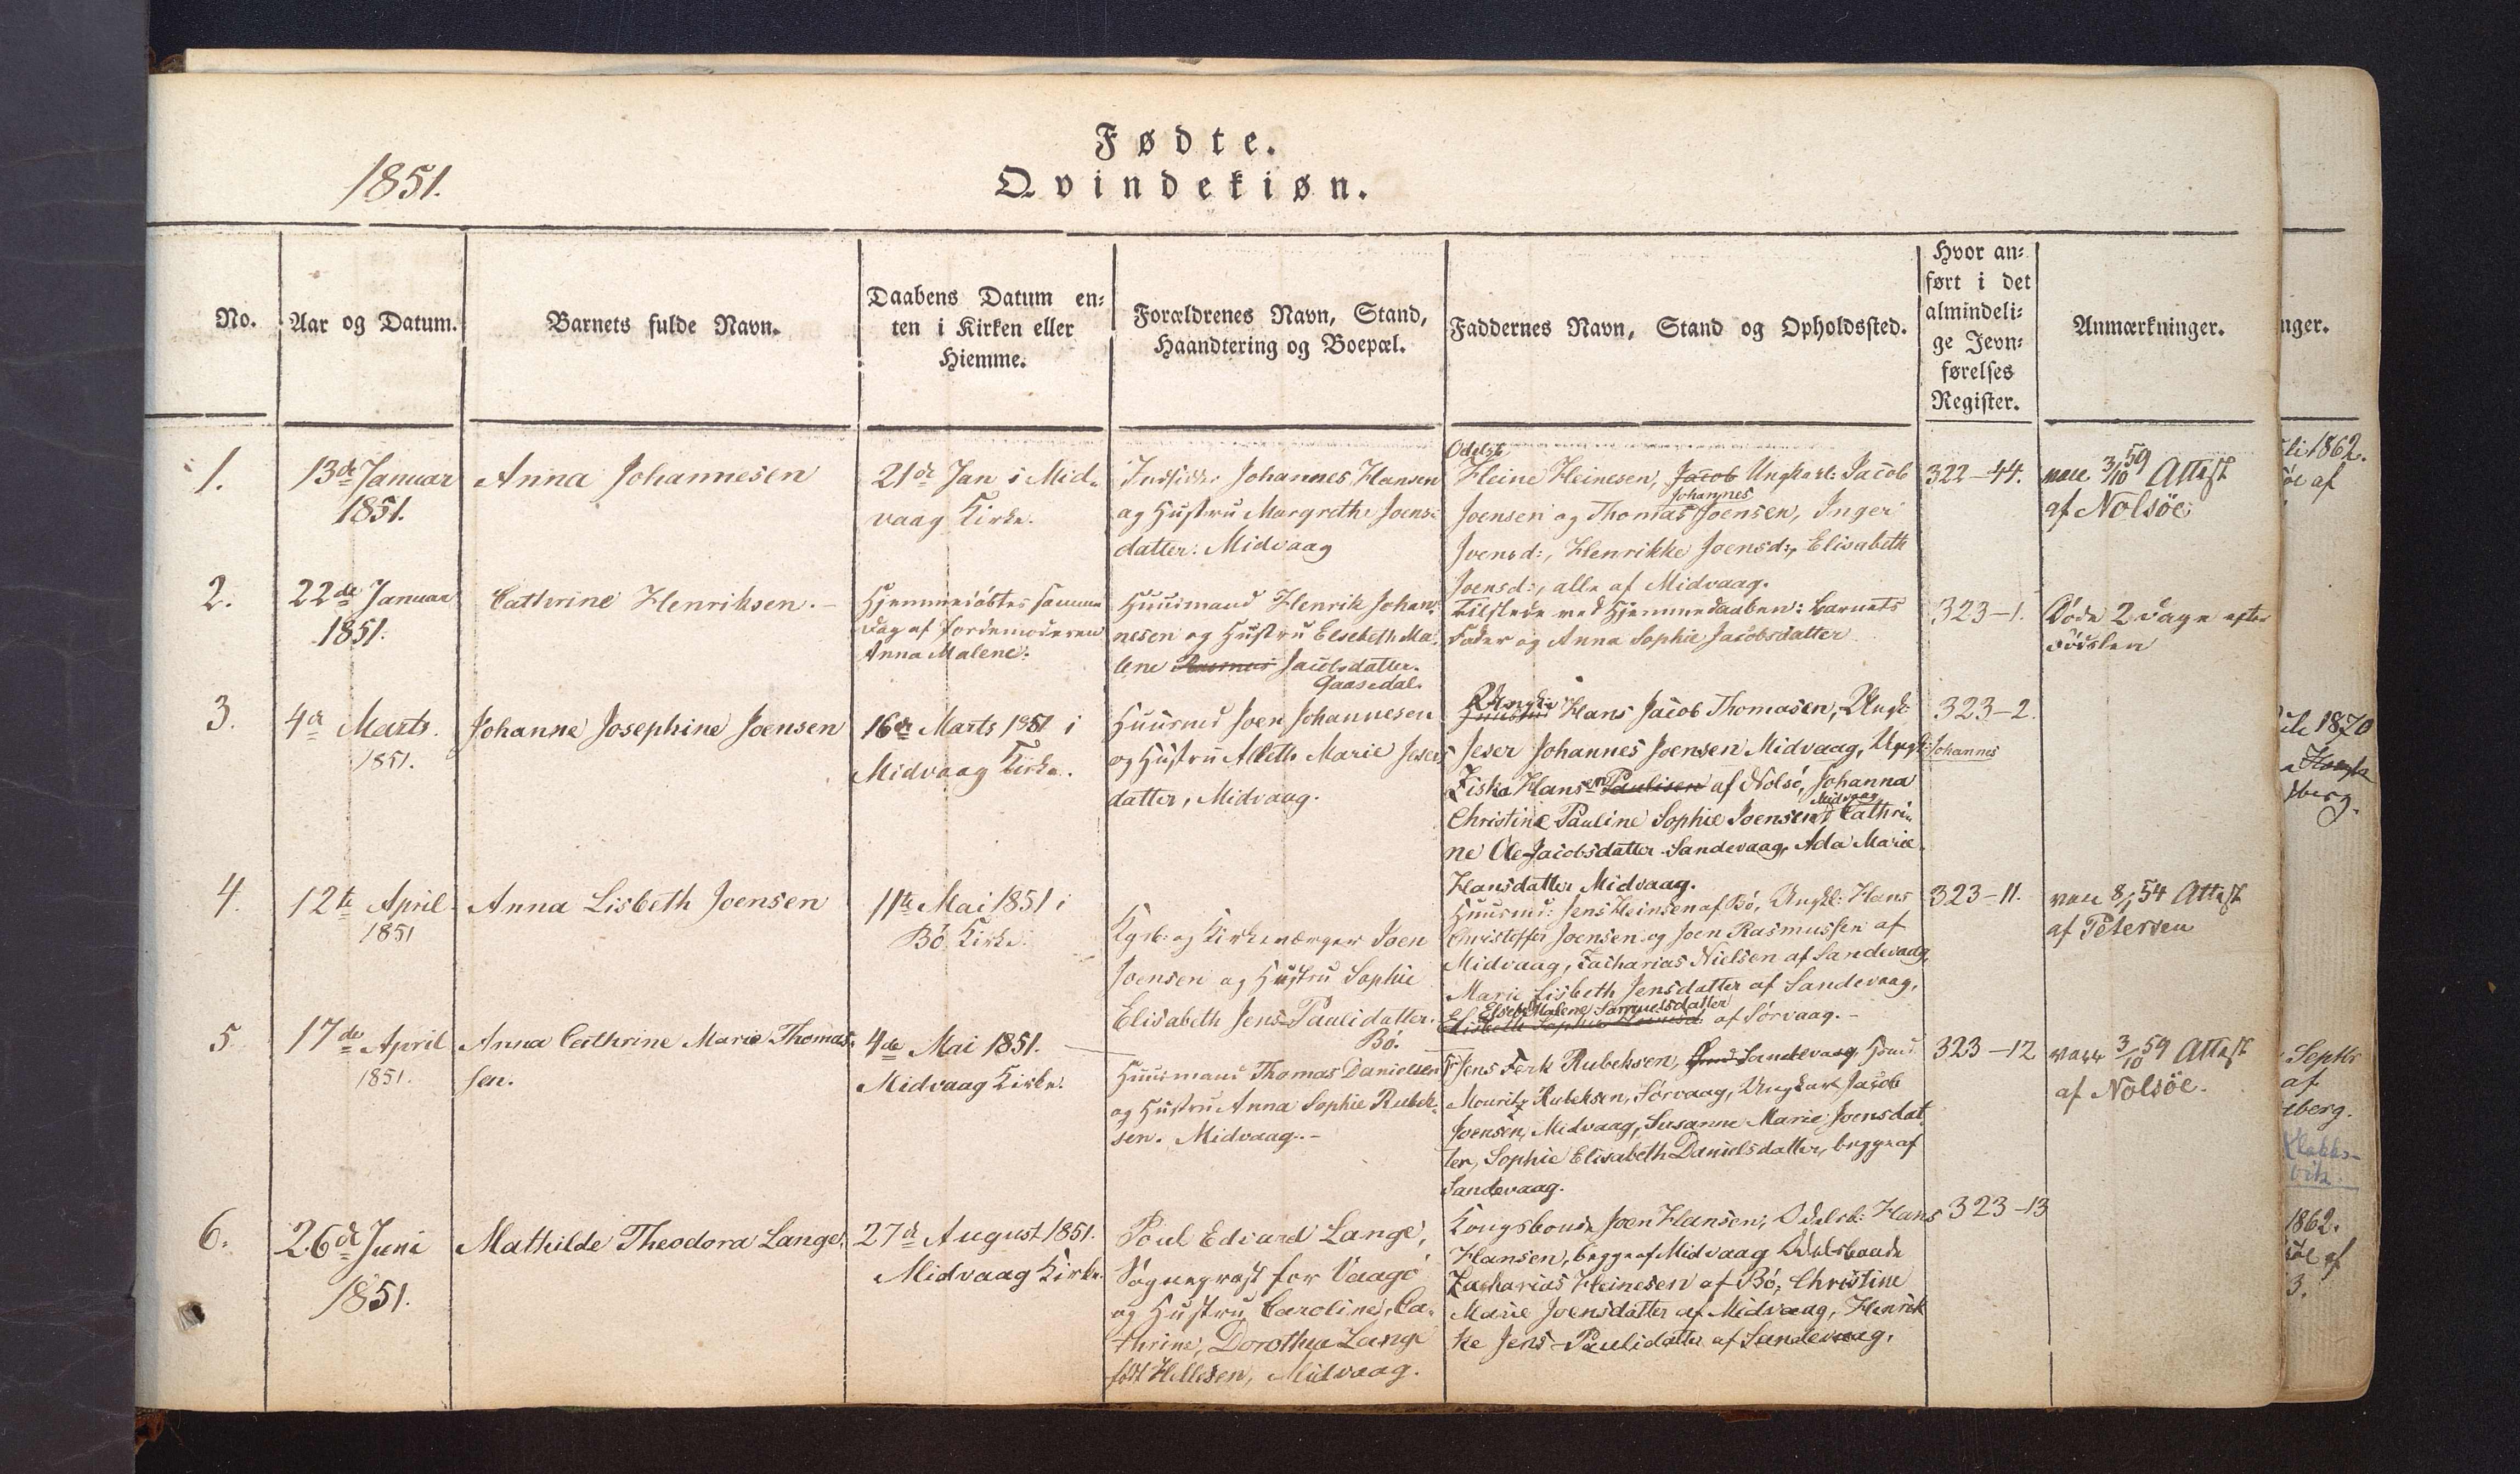 Fødte.
Qvindekiøn.
1851.
No.
Aar og Datum.
Barnets fulde Navn.
Daabens Datum en-
ten i Kirken eller
Hiemme.
Forældrenes Navn, Stand,
Haandtering og Boepæl.
Faddernes Navn, Stand og Opholdssted.
Hvor an-
ført i det
almindeli-
ge Jevn-
førelses
Register.
Anmærkninger.
1.
13de Januar
1851.
Anna Johannesen
21de Jan i Mid-
vaag Kirke.
Johannes Hansen
og Hustru Margrethe Joens-
datter. Midvaag
Odelsb
Heine Heinesen, Jacob Ungkarl: Jacob
Johannes
Joensen og Thomas Joensen, Inger
Joensd:, Henrikke Joensd:, Elisabeth
Joensd:, alle af Midvaag.
322-44.
vacc 3/10 59 Attest
af Nolsøe
2.
22de Januar
1851.
Cathrine Henriksen.
Hjemmedøbtes samme
Dag af Jordemoderen
Anna Malene.
Huusmand Henrik Johan-
nesen og Hustru Elsebeth Ma-
lene Rasmus Jacobsdatter.
Gaasedal.
Tilstede ved Hjemmedaaben: Barnets
Fader og Anna Sophie Jacobsdatter
323-1.
Døde 2 Dage efter
Fødslen
3.
4de Marts.
1851.
Johanne Josephine Joensen
16de Marts 1851 i
Midvaag Kirke.
Huusmd Joen Johannesen
og Hustru Marie Jesers
datter, Midvaag.
Hans Jacob Thomasen, Ungk:
Jeser Johannes Joensen Midvaag, Ungk: Johannes
Ziska Hansen Paulisen af Nolsö, Johanna
Midvaag
Christine Pauline Sophie Joensen, Cathri-
ne Ole-Jacobsdatter Sandevaag, Ada Marie
Hansdatter Midvaag.
323-2.
4.
12te April
1851
Anna Lisbeth Joensen
11te Mai 1851 i
Bö Kirke.
Kgsb: og Kirkeværger Joen
Joensen og Hustru Sophie
Elisabeth Jens-Paulidatter.
Bö.
Huusmd: Jens Heinsen af Bö, Ungkl: Hans
Christoffer Joensen og Joen Rasmussen af
Midvaag, Zacharias Nielsen af Sandevaag,
Marie Lisbeth Jensdatter af Sandevaag,
Elsebeth Malene Samuelsdatter
af Sörvaag.-
323-11.
vacc 8/1 54 Attest
af Petersen
5
17de April
1851.
Anna Cathrine Marie Thomas-
sen.
4de Mai 1851.
Midvaag Kirke.
Huusmand Thomas Danielsen
og Hustru Anna Sophie Rubek-
sen. Midvaag.-
Jens Ferk Rubeksen, Sandevaag,
Mouritz Rubeksen, Sörvaag, Ungkarl Jacob
Joensen, Midvaag, Susanne Marie Joensdat-
ter, Sophie Elisabeth Danielsdatter, begge af
Sandevaag.
323-12
vacc 3/10 59 Attest
af Nolsöe.
6.
26de Juni
1851.
Mathilde Theodora Lange.
27de August 1851.
Midvaag Kirke.
Poul Edvard Lange,
Sognepræst for Vaagö
og Hustru Caroline, Ca-
thrine, Dorothea Lange
født Hellesen, Midvaag.
Kongsbonde Joen Hansen, Odelsb: Hans
Hansen, begge af Midvaag Odelsbonde
Zacharias Heinesen af Bö, Christine
Marie Joensdatter af Midvaag, Henrik
ke Jens-Paulidatter af Sandevaag.
323-13
nger.
1862.
af
1870
berg.
Septbr
af
berg.
1862.
af
3.